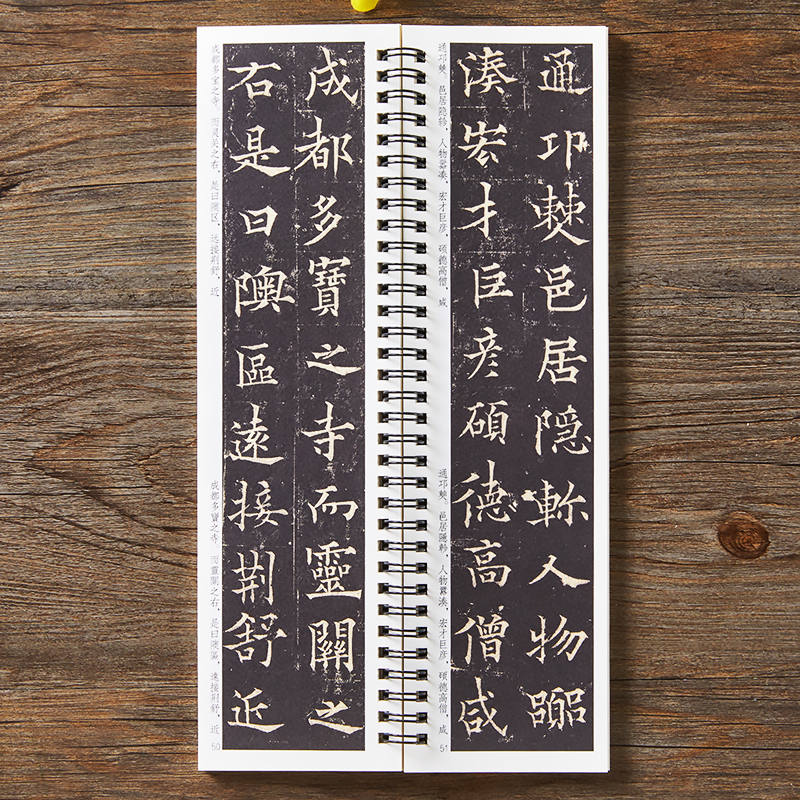 成都多寶之寺而靈關之
右是曰隩區遠接荊舒近
成都多宝之寺，而灵关之右，是曰隩区，远接荆舒，近
成都多寶之寺，而靈關之右，是曰隩區，遠接荊舒，近
50
通邛僰邑居隱軫人物嚻
湊宏才巨彥碩德高僧咸
通邛僰。邑居隐轸，人物嚣凑，宏才巨彦，硕德高僧，咸
通邛僰。邑居隱軫，人物囂湊，宏才巨彦，碩德高僧，咸
51